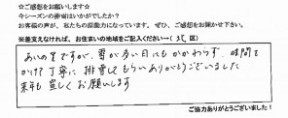 ☆ご感想をお願いします☆
今シーズンの排雪はいかがでしたか？
お客様の声が、私たちの原動力になっています。ぜひ、ご感想をお聞かせ下さい。
※差支えなければ、お住まいの地域をご記入ください→( 北 区)
あいの里ですが、雪が多い日にもかかわらず、時間を
かけて丁寧に排雪してもらいありがとうございました
来年も宜しくお願いします
ご協力ありがとうございました！